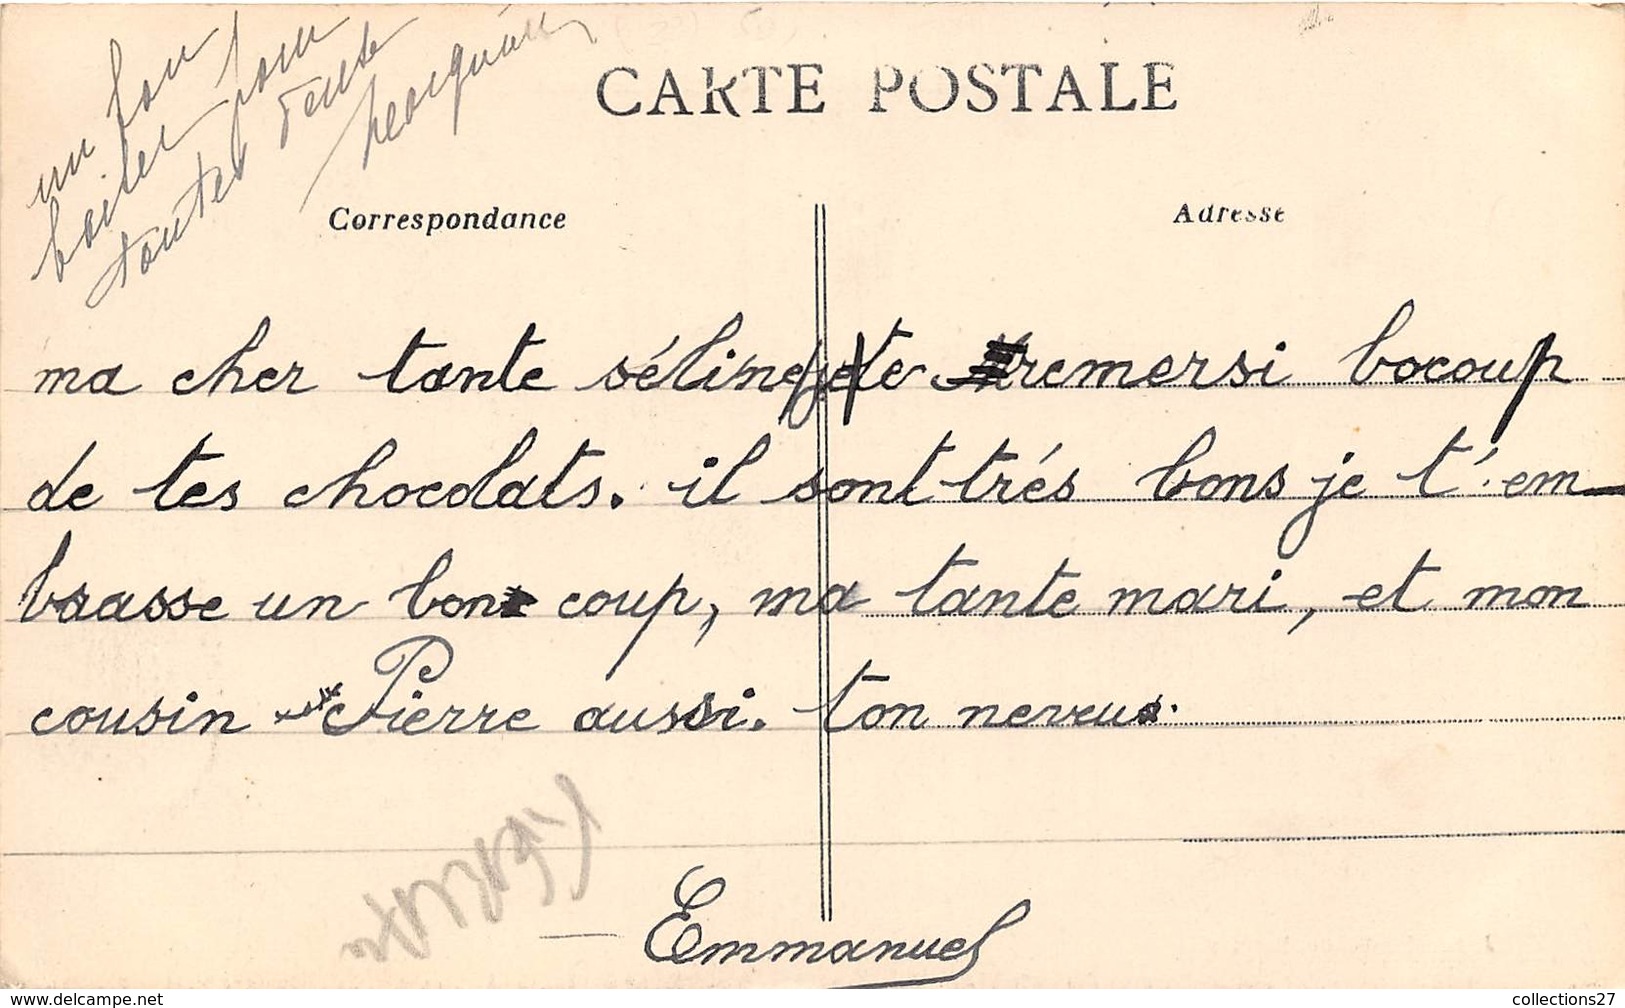 un bon
baiser pour
toutes deute
CARTE POSTALE
Correspondance
Adresse
ma cher tante séline je te remersi bocoup
de tes chocolats. il sont trés bons je t'em-
brasse un bon coup, ma tante mari, et mon
cousin Pierre aussi. ton neveu.
Emmanuel
www.delcampe.net
collections27